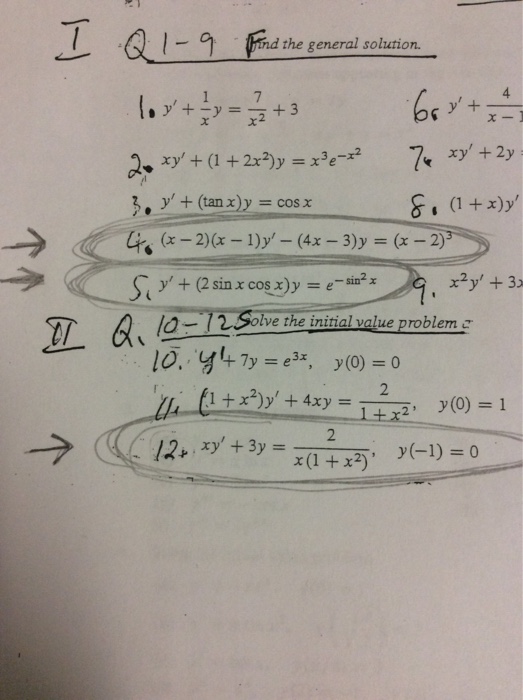 I Q 1-9 Find the general solution.
1. y' + 1/x y = 7/x² + 3
6. y' + 4/x - 1
2. xy' + (1 + 2x²)y = x³e^(-x²)
7. xy' + 2y
3. y' + (tan x)y = cos x
8. (1 + x)y'
4. (x - 2)(x - 1)y' - (4x - 3)y = (x - 2)³
5. y' + (2 sin x cos x)y = e^(-sin² x)
9. x²y' + 3x
II Q. 10-12 Solve the initial value problem
10. y' + 7y = e^(3x), y(0) = 0
11. (1 + x²)y' + 4xy = 2/(1 + x²), y(0) = 1
12. xy' + 3y = 2/(x(1 + x²)), y(-1) = 0